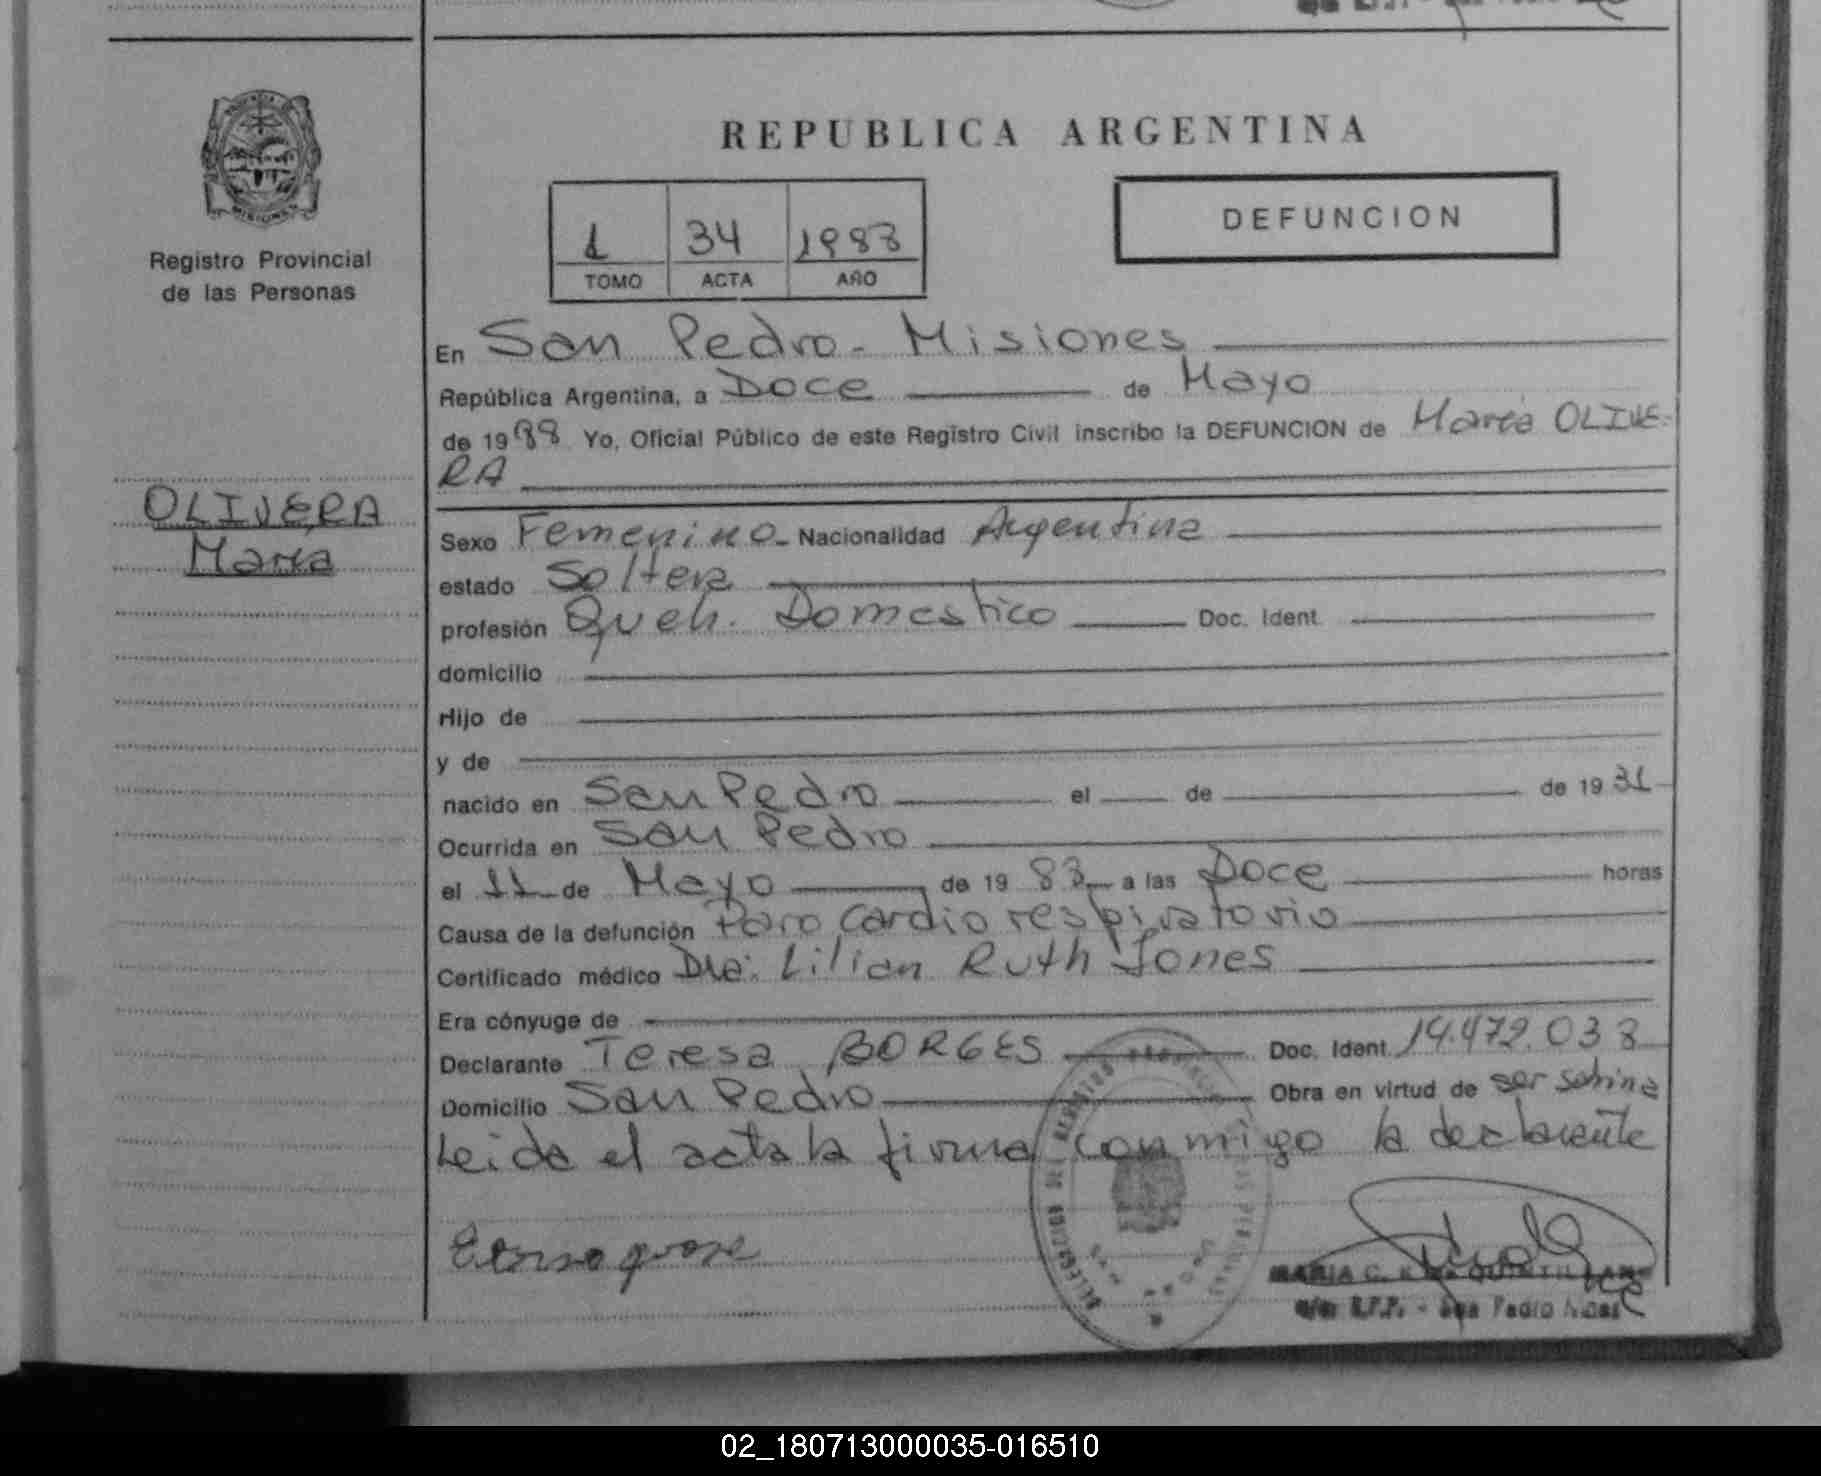 REPUBLICA ARGENTINA
MISIONES
Registro Provincial
de las Personas
1 34 1983
TOMO ACTA AÑO
DEFUNCION
En San Pedro - Misiones
República Argentina, a Doce de Mayo
de 1988 Yo, Oficial Público de este Registro Civil inscribo la DEFUNCION de María OLIVE-
RA
OLIVERA
María
Sexo Femenino - Nacionalidad Argentina
estado Soltera
profesión Queh. Domestico Doc. Ident.
domicilio
Hijo de
y de
nacido en San Pedro el de de 1931
Ocurrida en San Pedro
el 11 de Mayo de 1983 a las Doce horas
Causa de la defunción Paro cardio respiratorio
Certificado médico Dra: Lilian Ruth Jones
Era cónyuge de
Declarante Teresa BORGES Doc. Ident. 14.472.038
Domicilio San Pedro Obra en virtud de ser sobrina
Leida el acta la firma conmigo la declarante
MARIA C. QUINTILLAN
R.P.P. - San Pedro Mnes
02_180713000035-016510